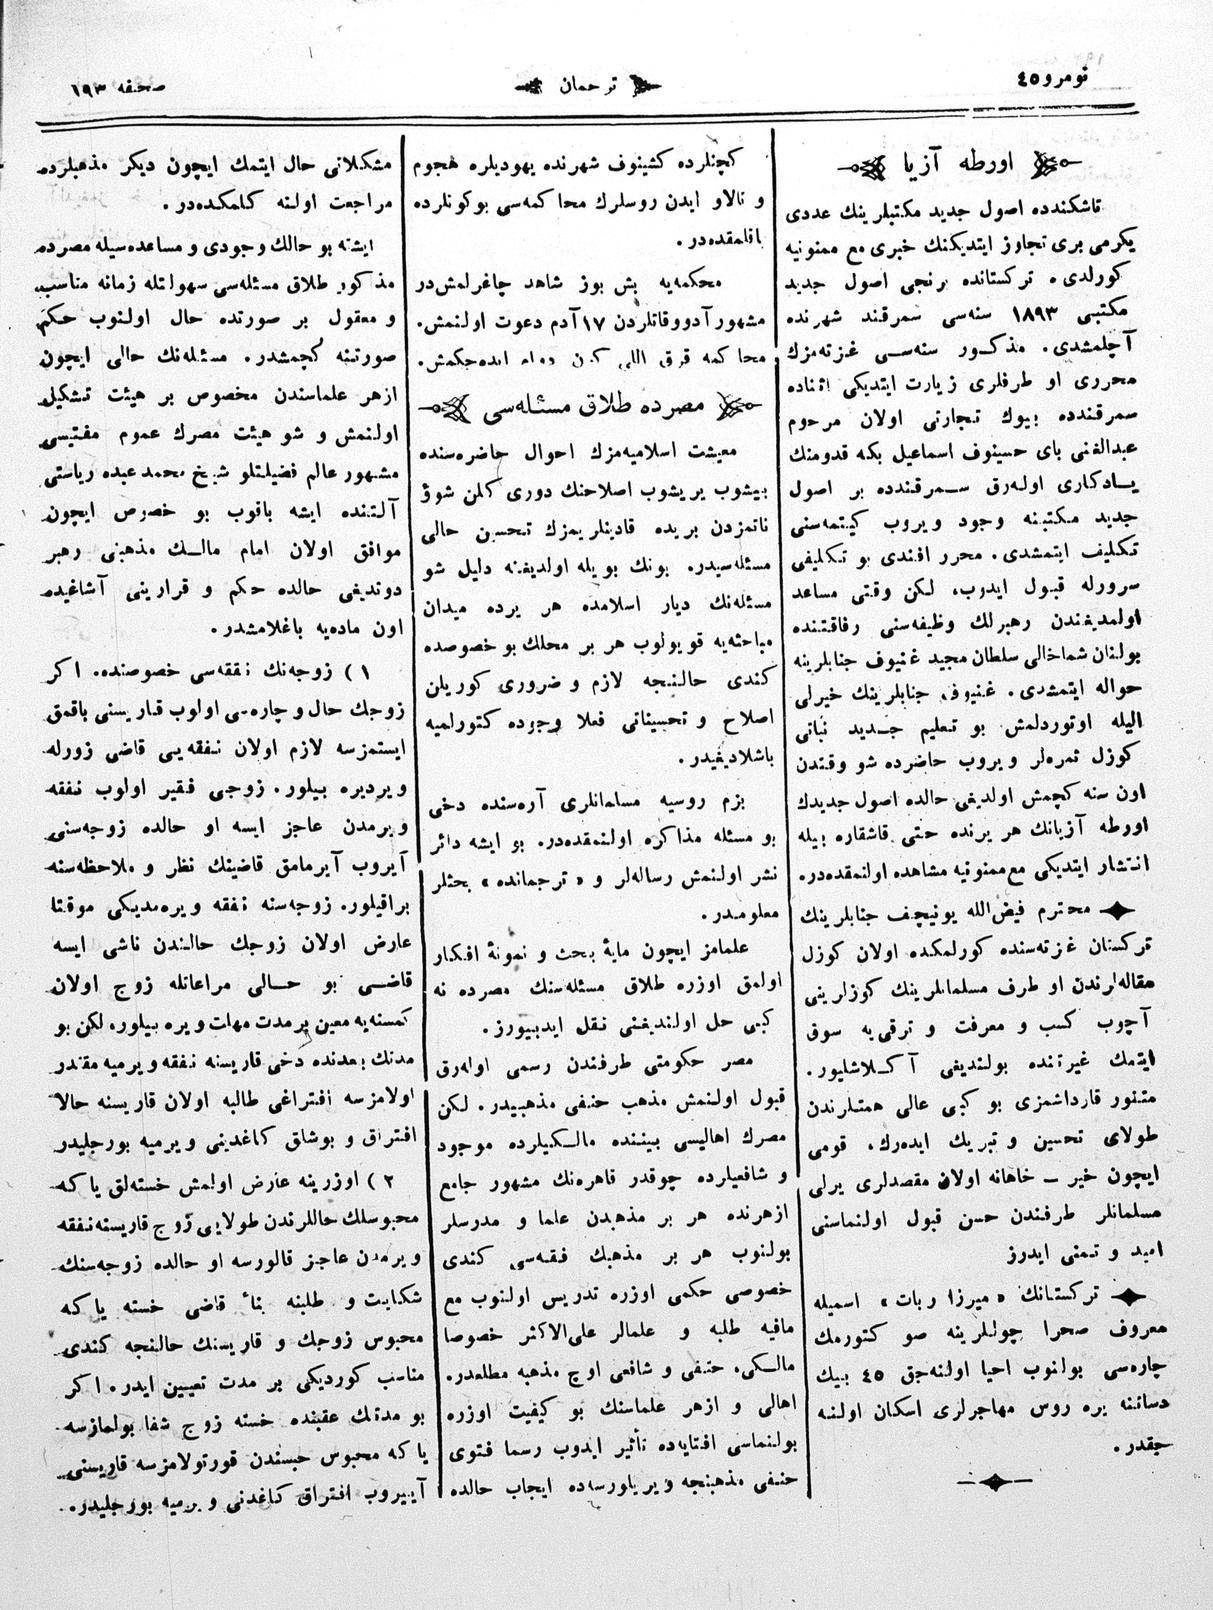 نومرو ٤٥
ترجمان
صحیفه ١٩٣
اورطه آزیا
تاشكندده اصول جدید مكتبلرینك عددی
یكرمی بری تجاوز ایتدیكنك خبری مع ممنونیه
كورلدی. تركستانده برنجی اصول جدید
مكتبی ١٨٩٣ سنه‌سی سمرقند شهرنده
آچلمشدی. مذكور سنه‌سی غزته‌مزك
محرری او طرفلری زیارت ایتدیكی اثناده
سمرقندده بیوك تجارتی اولان مرحوم
عبدالغنی بای حسینوف اسماعیل بكه قدومنك
یادكاری اوله‌رق سمرقندده بر اصول
جدید مكتبنه وجود ویروب كیتمه‌سنی
تكلیف ایتمشدی. محرر افندی بو تكلیفی
سرورله قبول ایدوب، لكن وقتی مساعد
اولمدیغندن رهبرلك وظیفه‌سنی رفاقتنده
بولنان شماخالی سلطان مجید غنیوف جنابلرینه
حواله ایتمشدی. غنیوف جنابلرینك خیرلی
الیله اوتوردلمش بو تعلیم جدید نباتی
كوزل ثمره‌لر ویروب حاضرده شو وقتدن
اون سنه كچمش اولدیغی حالده اصول جدیدك
اورطه آزیانك هر یرنده حتی قاشقاره بیله
انتشار ایتدیكی مع ممنونیه مشاهده اولنمقده‌در.
محترم فیض‌الله یونیچف جنابلرینك
تركستان غزته‌سنده كورلمكده اولان كوزل
مقاله‌لرندن او طرف مسلمانلرینك كوزلرینی
آچوب كسب و معرفت و ترقی‌یه سوق
ایتمك غیرتنده بولندیغی آكلاشلیور.
متنور قارداشمزی بو كبی عالی همتلرندن
طولای تحسین و تبریك ایده‌رك، قومی
ایچون خیر ـ خاهانه اولان مقصدلری یرلی
مسلمانلر طرفندن حسن قبول اولنماسنی
امید و تمنی ایدرز
تركستانك «میرزا ربات» اسمیله
معروف صحرا چوللرینه صو كتورمك
چاره‌سی بولنوب احیا اولنه‌جق ٤٥ بیك
دساتنه یره روس مهاجرلری اسكان اولنه
جقدر.
كچنلرده كشینوف شهرنده یهودیلره هجوم
و تالاو ایدن روسلرك محاكمه‌سی بوكونلرده
باقلمقده‌در.
محكمه‌یه بش یوز شاهد چاغرلمش‌در
مشهور آدووقاتلردن ١٧ آدم دعوت اولنمش.
محاكمه قرق اللی كون دوام ایده‌جكمش.
مصرده طلاق مسئله‌سی
معیشت اسلامیه‌مزك احوال حاضره‌سنده
بیشوب یریشوب اصلاحنك دوری كلمن شوؤ
ناتمزدن بریده قادینلریمزك تحسین حالی
مسئله‌سیدر. بونك بویله اولدیغنه دلیل شو
مسئله‌نك دیار اسلامده هر یرده میدان
مباحثه‌یه قویولوب هر بر محلك بو خصوصده
كندی حالنجه لازم و ضروری كوریلن
اصلاح و تحسیناتی فعلا وجوده كتورلمیه
باشلادیغیدر.
بزم روسیه مسلمانلری آره‌سنده دخی
بو مسئله مذاكره اولنمقده‌در. بو ایشه دائر
نشر اولنمش رساله‌لر و «ترجمانده» بحثلر
معلومدر.
علمامز ایچون مایهٔ بحث و نمونهٔ افكار
اولمق اوزره طلاق مسئله‌سنك مصرده نه
كبی حل اولندیغنی نقل ایدییورز.
مصر حكومتی طرفندن رسمی اوله‌رق
قبول اولنمش مذهب حنفی مذهبیدر. لكن
مصرك اهالیسی بیننده مالكیلرده موجود
و شافعیلرده چوقدر قاهره‌نك مشهور جامع
ازهرنده هر بر مذهبدن علما و مدرسلر
بولنوب هر بر مذهبك فقه‌سی كندی
خصوصی حكمی اوزره تدریس اولنوب مع
مافیه طلبه و علمالر علی‌الاكثر خصوصا
مالكی، حنفی و شافعی اوچ مذهبه مطلعدر.
اهالی و ازهر علماسنك بو كیفیت اوزره
بولنماسی افتایه‌ده تأثیر ایدوب رسما فتوی
حنفی مذهبنجه ویریلورسه‌ده ایجاب حالده
مشكلاتی حال ایتمك ایچون دیكر مذهبلرده
مراجعت اولنه كلمكده‌در.
ایشته بو حالك وجودی و مساعده‌سیله مصرده
مذكور طلاق مسئله‌سی سهولتله زمانه مناسب
و معقول بر صورتده حال اولنوب حكم
صورتنه كچمشدر. مسئله‌نك حالی ایچون
ازهر علماسندن مخصوص بر هیئت تشكیل
اولنمش و شو هیئت مصرك عموم مفتیسی
مشهور عالم فضیلتلو شیخ محمد عبده ریاستی
آلتنده ایشه باقوب بو خصوص ایچون
موافق اولان امام مالك مذهبنی رهبر
دوتدیغی حالده حكم و قرارینی آشاغیده
اون ماده‌یه باغلامشدر.
١ ) زوجه‌نك نفقه‌سی خصوصنده. اكر
زوجك حال و چاره‌سی اولوب قاریسنی باقمق
ایستمزسه لازم اولان نفقه‌یی قاضی زورله
ویردیره بیلور. زوجی فقیر اولوب نفقه
ویرمدن عاجز ایسه او حالده زوجه‌سنی
آیروب آیرمامق قاضینك نظر و ملاحظه‌سنه
براقیلور. زوجه‌سنه نفقه ویره‌مدیكی موقتا
عارض اولان زوجك حالندن ناشی ایسه
قاضی بو حالی مراعاتله زوج اولان
كمسنه‌یه معین برمدت مهلت ویره بیلور. لكن بو
مدتك بعدنده دخی قاریسنه نفقه ویرمیه مقتدر
اولامزسه افتراغی طالبه اولان قاریسنه حالا
افتراق و بوشلق كاغدینی ویرمیه بورجلیدر
٢ ) اوزرینه عارض اولمش خسته‌لق یاكه
محبوسلك حاللرندن طولایی زوج قاریسنه نفقه
ویرمدن عاجز قالورسه او حالده زوجه‌سنك
شكایت و طلبنه بناً قاضی خسته یاكه
محبوس زوجك و قاریسنك حالنجه كندی
مناسب كوردیكی بر مدت تعیین ایدر. اكر
بو مدتك عقبنده خسته زوج شفا بولمازسه
یاكه محبوس حبسندن قورتولامزسه قاریسنی
آییروب افتراق كاغدنی ویرمیه بورجلیدر.